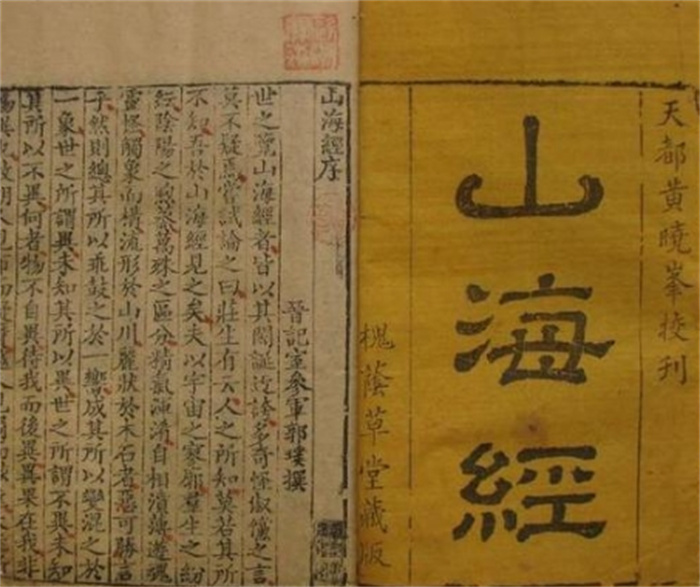 天都黄曉峯挍刊
山海經
槐蔭草堂藏版
山海經序
晉記室參軍郭璞撰
世之覽山海經者皆以其閎誕迂誇多奇怪俶儻之言
莫不疑焉嘗試論之曰莊生有云人之所知莫若其所
不知吾於山海經見之矣夫以宇宙之寥廓羣生之紛
紜陰陽之煦蒸萬殊之區分精氣渾淆自相濆薄遊魂
靈怪觸象而構流形於山川麗狀於木石者惡可勝言
乎然則總其所以乖鼓之於一響成其所以變混之於
一象世之所謂異未知其所以異世之所謂不異未知
其所以不異何者物不自異待我而後異異果在我非